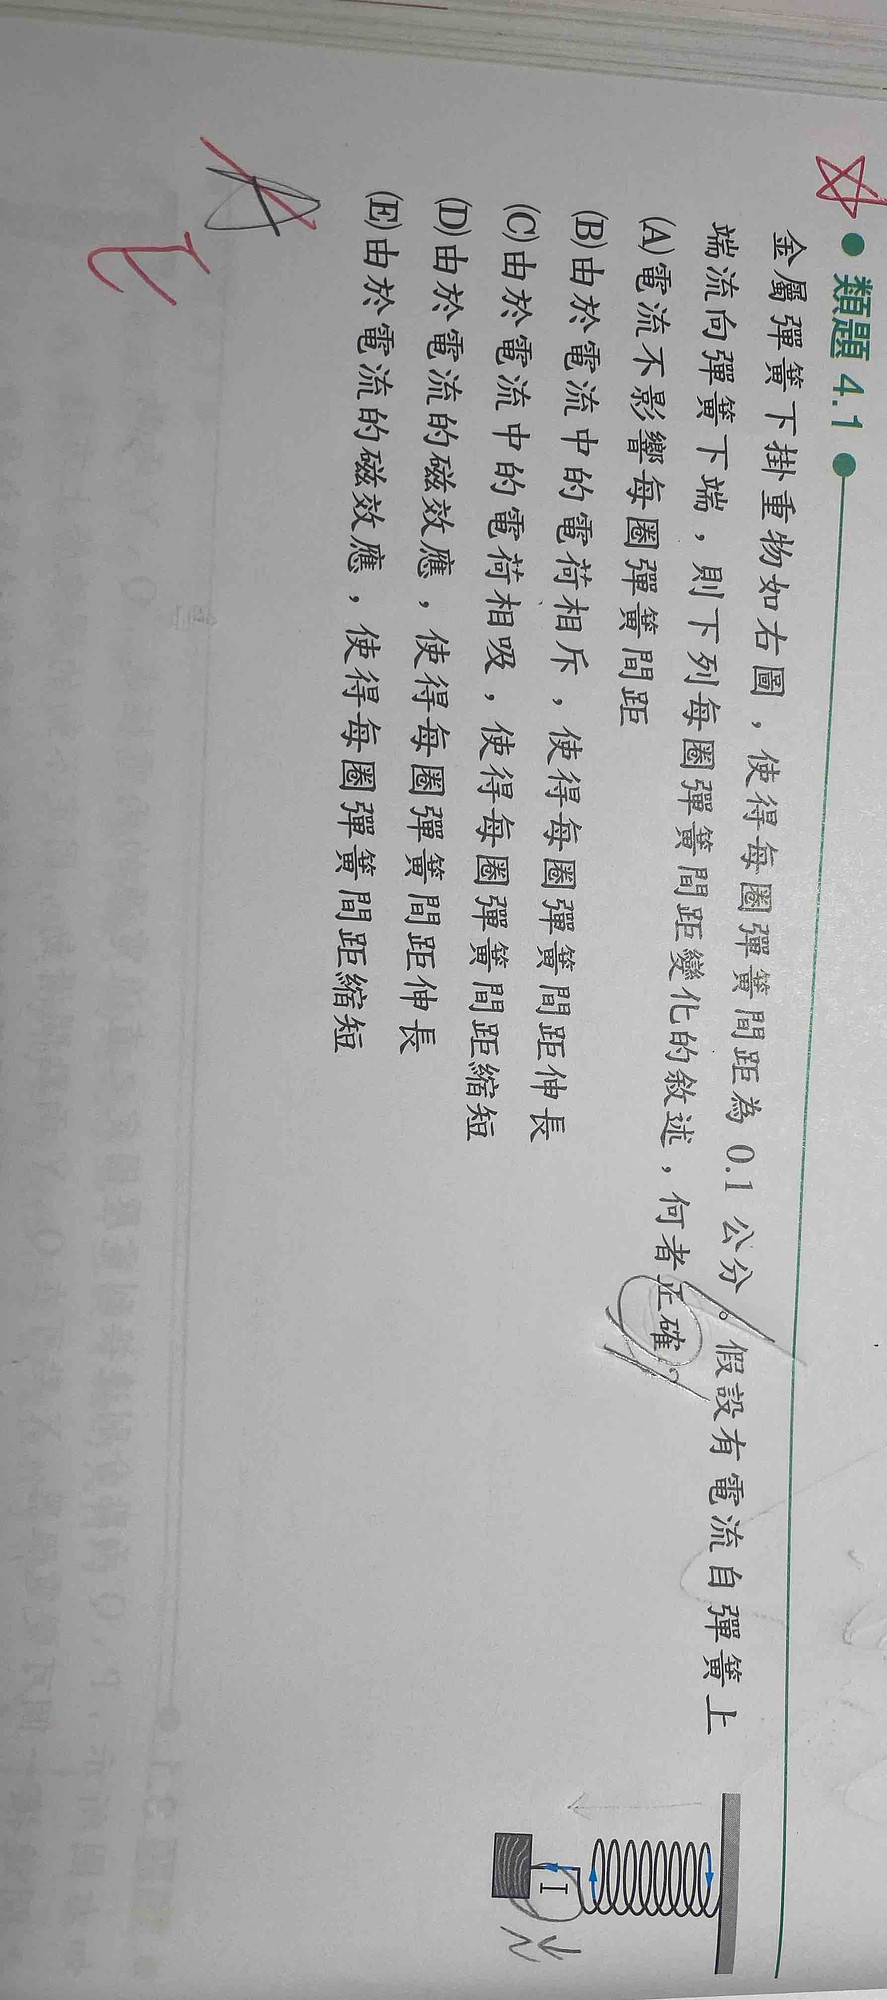 類題 4.1
金屬彈簧下掛重物如右圖，使得每圈彈簧間距為 0.1 公分。假設有電流自彈簧上
端流向彈簧下端，則下列每圈彈簧間距變化的敘述，何者正確？
(A)電流不影響每圈彈簧間距
(B)由於電流中的電荷相斥，使得每圈彈簧間距伸長
(C)由於電流中的電荷相吸，使得每圈彈簧間距縮短
(D)由於電流的磁效應，使得每圈彈簧間距伸長
(E)由於電流的磁效應，使得每圈彈簧間距縮短
I
N
A